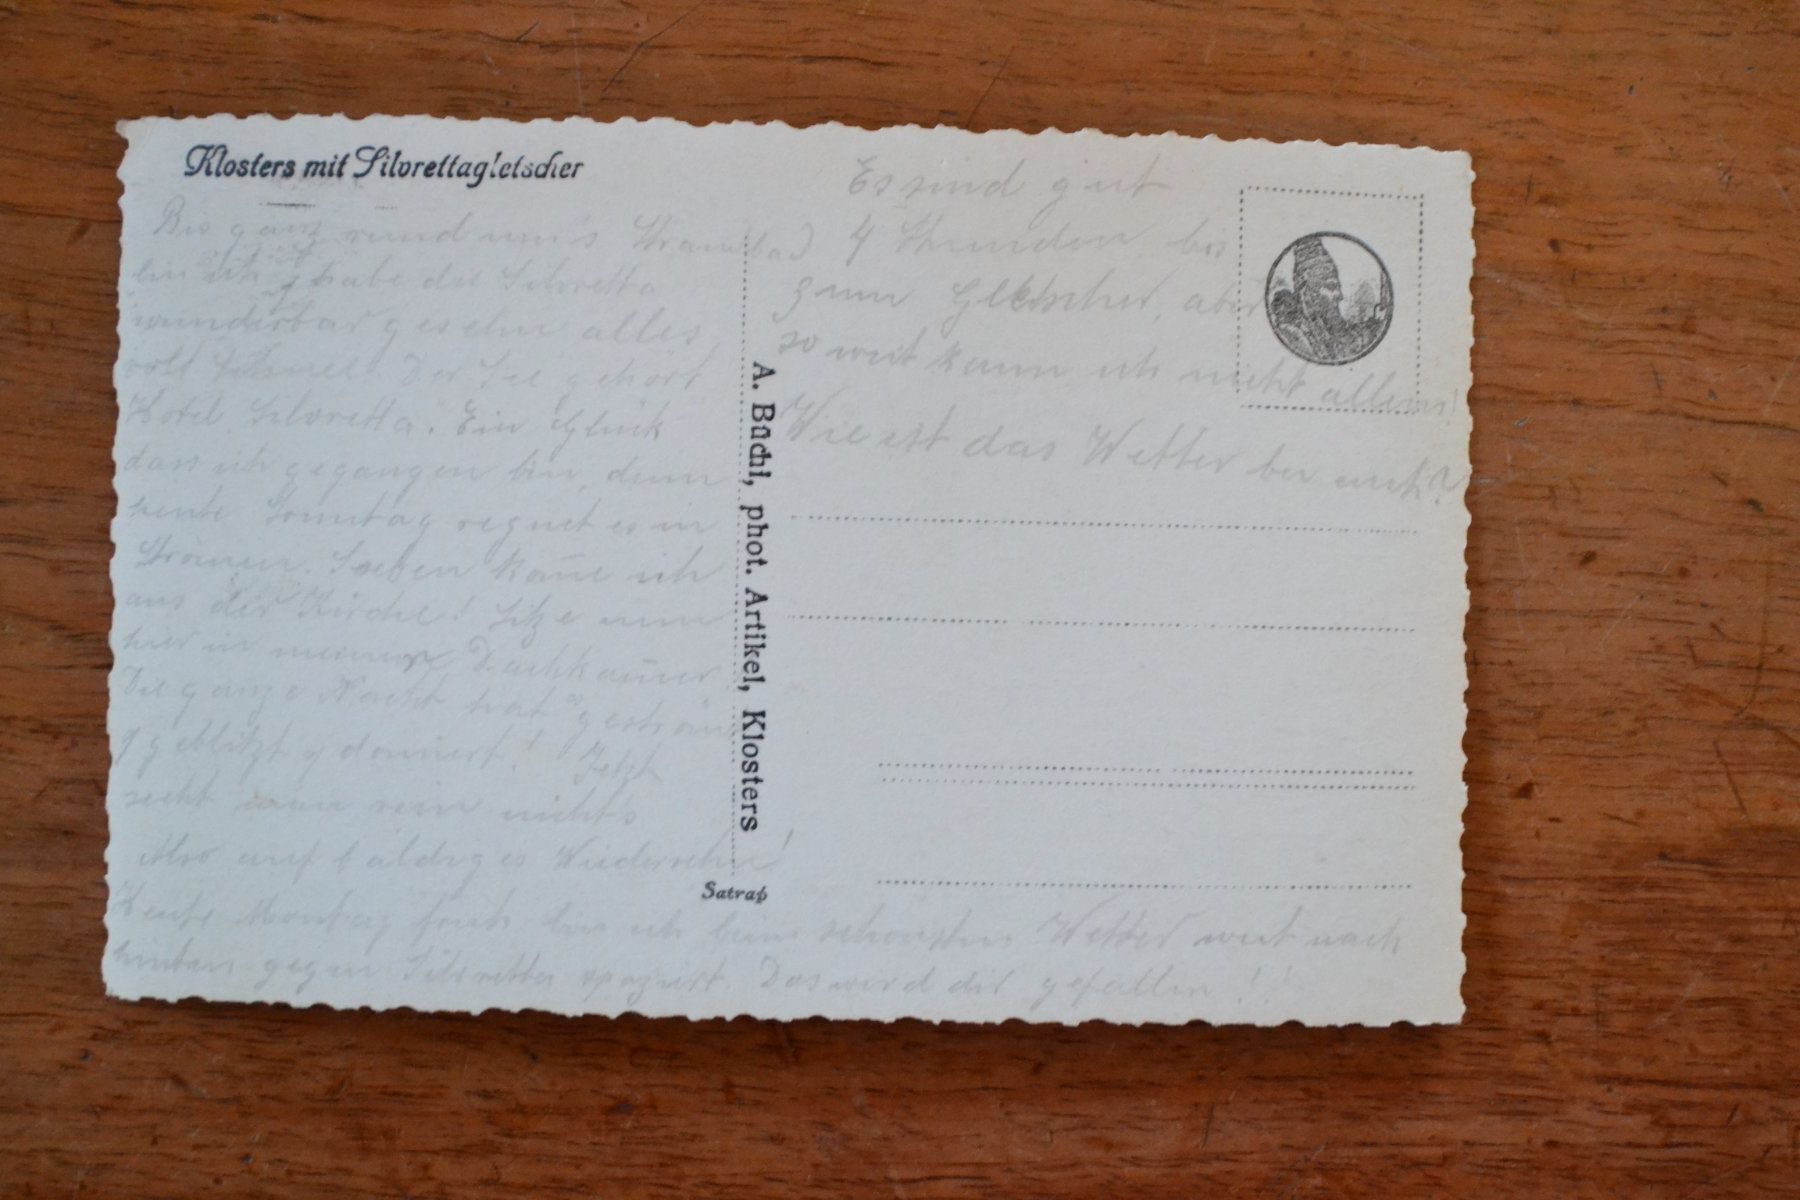 Klosters mit Silvrettagletscher
Bis ganz rund um's Strandbad
bin ich habe die Silvretta
wunderbar gesehn alles
voll Schnee. Der See gehört
Hotel Silvretta. Ein Glück
dass ich gegangen bin, denn
heute Sonntag regnet es in
Strömen. Soeben kom̄e ich
aus der Kirche! Sitze nun
hier in meiner Dachkam̄er
Die ganze Nacht hat es geströmt
geblitzt & donnert! Jetzt
sieht man rein nichts
Also auf baldiges Wiedersehn!
Heute Montag früh bin ich beim schönsten Wetter weit nach
hinten gegen Silvretta spaziert. Das wird dir gefallen!!
A. Büchi, phot. Artikel, Klosters
Satrap
Es sind gut
4 Stunden bis
zum Gletscher, aber
so weit kann ich nicht allein!
Wie ist das Wetter bei euch?